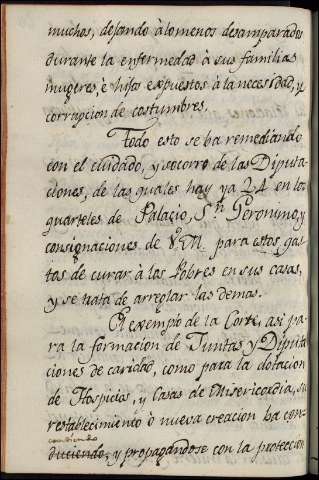 muchos, dejando à lo menos desamparados
durante la enfermedad à sus familias
mugeres, è hijos expuestos à la necesidad, y
corrupcion de costumbres.
Todo esto se ba remediando
con el cuidado, y socorro de las Diputa-
ciones, de las quales hay ya 24 en los
quarteles de Palacio, Sn. Geronimo, y
consignaciones de V.M. para estos gas-
tos de curar à los Pobres en sus casas,
y se trata de arreglar las demas.
Al exemplo de la Corte, asi pa-
ra la formacion de Juntas y Diputa
ciones de caridad, como para la dotacion
de Hospicios, y Casas de Misericordia, su
restablecimiento ò nueva creacion ha con-
cundiendo
duciendo, y propagandose con la proteccion